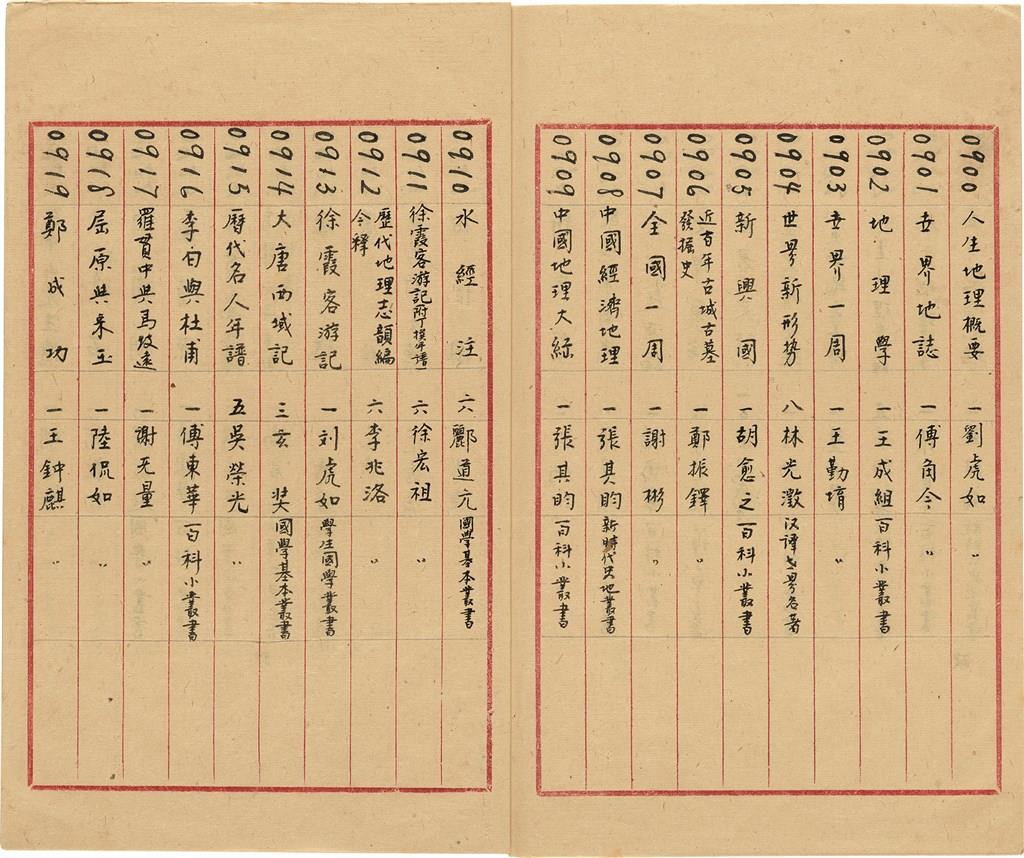 0900 人生地理概要 一 劉虎如 〃
0901 世界地誌 一 傅角今 〃
0902 地理學 一 王成組 百科小叢書
0903 世界一周 一 王勤堉 〃
0904 世界新形势 八 林光澂 汉譯世界名著
0905 新興國 一 胡愈之 百科小叢書
0906 近百年古城古墓發掘史 一 鄭振鐸 〃
0907 全國一周 一 謝彬 〃
0908 中國經濟地理 一 張其昀 新時代史地叢書
0909 中國地理大綱 一 張其昀 百科小叢書
0910 水經注 六 酈道元 國學基本叢書
0911 徐霞客游記附丁撰年譜 六 徐宏祖 〃
0912 歷代地理志韻編今釋 六 李兆洛 〃
0913 徐霞客游記 一 刘虎如 學生國學叢書
0914 大唐西域記 三 玄奘 國學基本叢書
0915 曆代名人年譜 五 吳榮光 〃
0916 李白與杜甫 一 傅東華 百科小叢書
0917 羅貫中與馬致遠 一 謝无量 〃
0918 屈原與宋玉 一 陸侃如 〃
0919 鄭成功 一 王鍾麒 〃